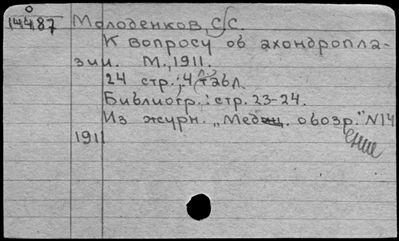 О
14487 Молоденков, С. С.
К вопросу об ахондропла-
зии. М., 1911.
24 стр.; 4 табл.
Библиогр.: стр. 23-24.
Из журн. „Мед. обозр." N14
ение
1911